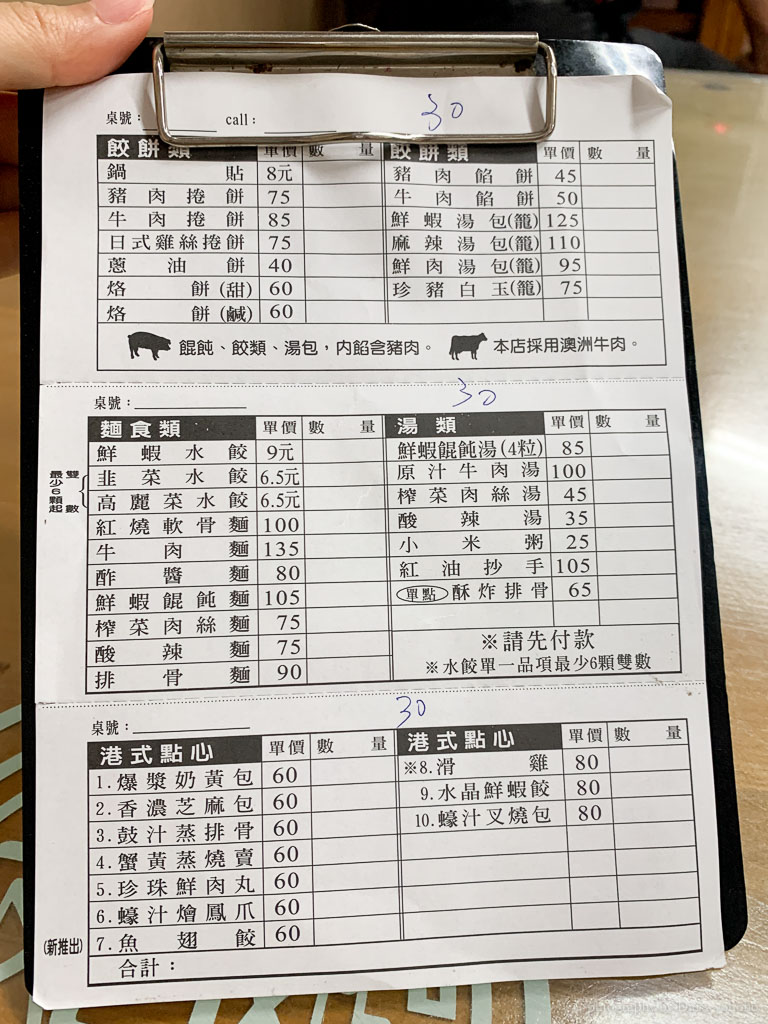 桌號： call： 30
餃餅類 單價 數量
鍋貼 8元
豬肉捲餅 75
牛肉捲餅 85
日式雞絲捲餅 75
蔥油餅 40
烙餅(甜) 60
烙餅(鹹) 60
餃餅類 單價 數量
豬肉餡餅 45
牛肉餡餅 50
鮮蝦湯包(籠) 125
麻辣湯包(籠) 110
鮮肉湯包(籠) 95
珍豬白玉(籠) 75
餛飩、餃類、湯包，內餡含豬肉。 本店採用澳洲牛肉。
桌號： 30
麵食類 單價 數量
鮮蝦水餃 9元
韭菜水餃 6.5元
高麗菜水餃 6.5元
雙數
最少6顆起
紅燒軟骨麵 100
牛肉麵 135
酢醬麵 80
鮮蝦餛飩麵 105
榨菜肉絲麵 75
酸辣麵 75
排骨麵 90
湯類 單價 數量
鮮蝦餛飩湯(4粒) 85
原汁牛肉湯 100
榨菜肉絲湯 45
酸辣湯 35
小米粥 25
紅油抄手 105
單點 酥炸排骨 65
※請先付款
※水餃單一品項最少6顆雙數
桌號： 30
港式點心 單價 數量
1.爆漿奶黃包 60
2.香濃芝麻包 60
3.鼓汁蒸排骨 60
4.蟹黃蒸燒賣 60
5.珍珠鮮肉丸 60
6.蠔汁燴鳳爪 60
(新推出) 7.魚翅餃 60
合計：
港式點心 單價 數量
※8.滑雞 80
9.水晶鮮蝦餃 80
10.蠔汁叉燒包 80